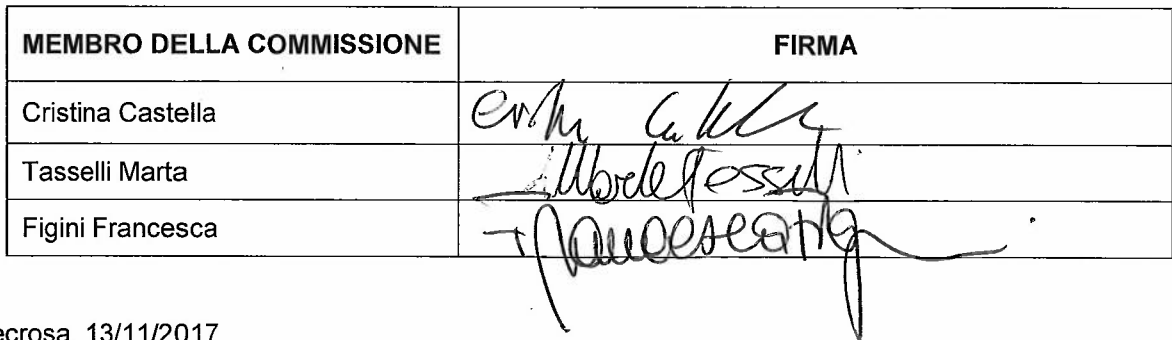 MEMBRO DELLA COMMISSIONE FIRMA
Cristina Castella
Tasselli Marta
Figini Francesca
ecrosa 13/11/2017